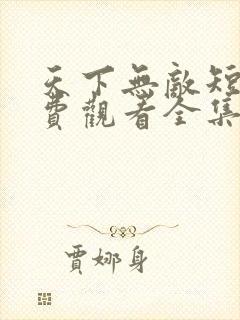 天下無敵短
費觀看全集
賈娜身